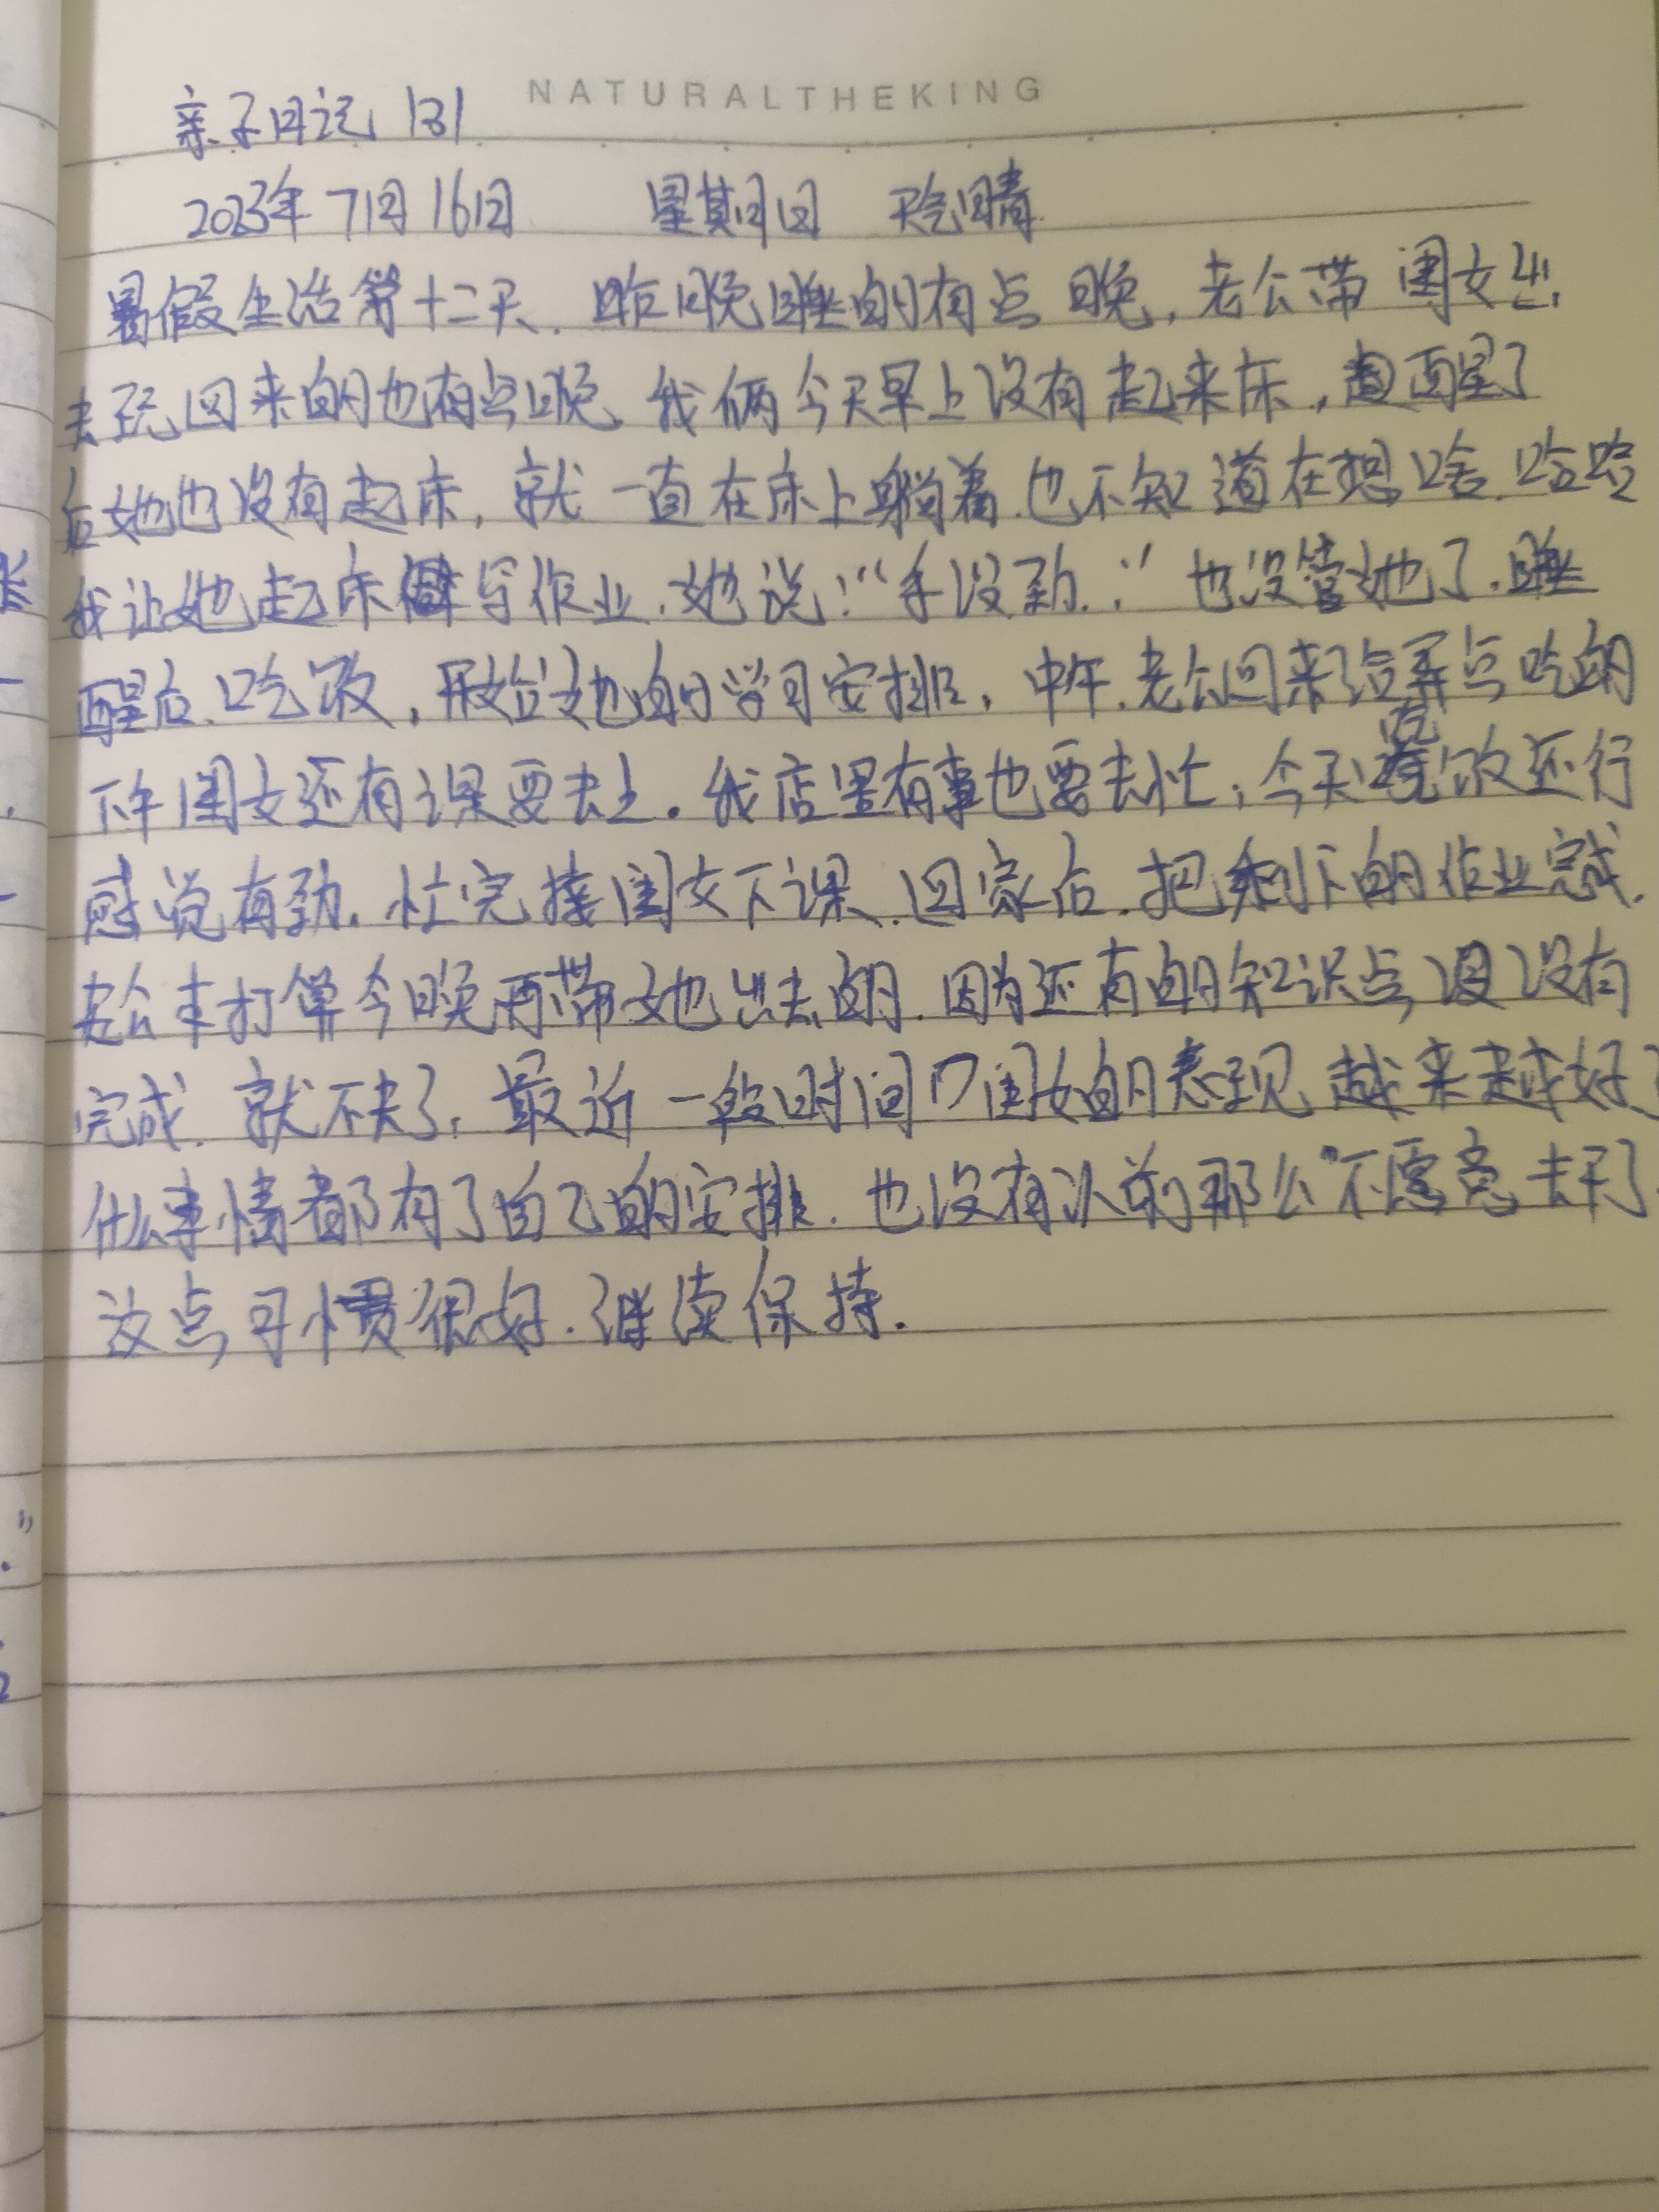 NATURALTHEKING
亲子日记 131
2023年7月16日 星期日 天气晴
暑假生活第十二天.昨晚睡的有点晚,老公带闺女出
去玩回来的也有点晚.我俩今天早上没有起来床,醒了
后她也没有起床,就一直在床上躺着.也不知道在想啥.哈哈
我让她起床写作业.她说:“手没劲.”也没管她了.睡
醒后.吃饭,开始她的学习安排,中午.老公回来给弄点吃的
下午闺女还有课要去上.我店里有事也要去忙,今天晚饭还行
感觉有劲.忙完接闺女下课.回家后.把剩下的作业完成.
老公本打算今晚再带她出去的.因为还有的知识点没有
完成.就不去了.最近一段时间闺女的表现越来越好了
什么事情都有了自己的安排.也没有以前那么不愿意去干了.
这点习惯很好.继续保持.